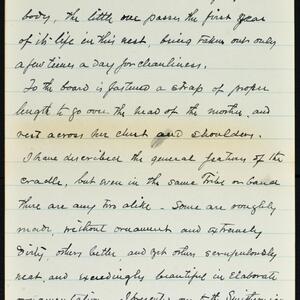 body, the little one passes the first year
of its life in this nest, being taken out only
a few times a day for cleanliness.
To the board is fastened a strap of proper
length to go over the head of the mother, and
rest across her chest and shoulders.
I have described the general features of the
cradle, but even in the same Tribe or band
there are any two alike – Some are roughly
made, without ornament and extremely
Dirty, others better, and yet others scrupulously
neat, and exceedingly beautiful in Elaborate
ornamentation. I to the Smithsonian